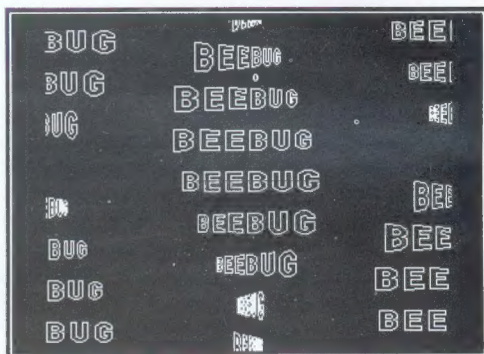 BUG
BUG
BUG
BUG
BUG
BUG
BUG
BEEBUG
BEEBUG
BEEBUG
BEEBUG
BEEBUG
BEEBUG
BEE
BEE
BEE
BEE
BEE
BEE